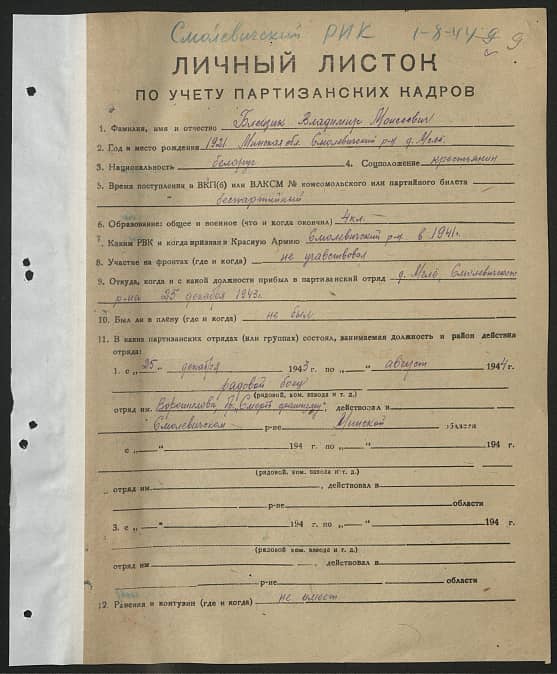 Смолевичский РИК 1-8-44 9 9
ЛИЧНЫЙ ЛИСТОК
ПО УЧЕТУ ПАРТИЗАНСКИХ КАДРОВ
1. Фамилия, имя и отчество Владимир Моисеевич
2. Год и место рождения 1921 Минская обл. Смолевичский р-н д.
3. Национальность белорус 4. Соцположение крестьянин
5. Время поступления в ВКП(б) или ВЛКСМ № комсомольского или партийного билета
беспартийный
6. Образование: общее и военное (что и когда окончил) 4 кл.
7. Каким РВК и когда призван в Красную Армию Смолевичский р-н в 1941 г.
8. Участие на фронтах (где и когда) не участвовал
9. Откуда, когда и с какой должности прибыл в партизанский отряд д. Смолевичского
р-на 25 декабря 1943 г.
10. Был ли в плену (где и когда) не был
11. В каких партизанских отрядах (или группах) состоял, занимаемая должность и район действия
отряда:
1. с „25" декабря 1943 г. по „ " август 1944 г.
рядовой боец
(рядовой, ком. взвода и т. д.)
отряд им. Ворошилова, Бр. Смерть фашизму, действовал в
Смолевичском р-не Минской области
с „ " 194 г. по „ " 194 г.
(рядовой, ком. взвода и т. д.)
отряд им. , действовал в
р-не области
3. с „ " 194 г. по „ " 194 г.
(рядовой ком. взвода и т. д.)
отряд им , действовал в
р-не области
12. Ранения и контузии (где и когда) не имеет